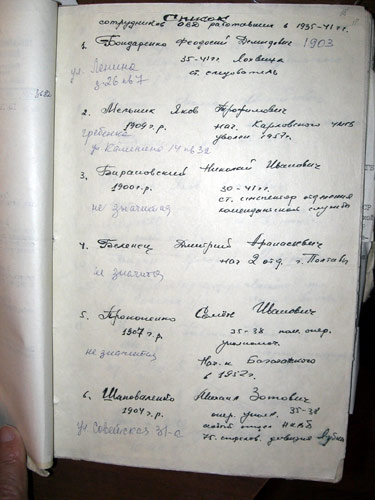 Список
сотрудников ОВД работавших в 1935-41 гг.
1. Бондаренко Феодосий Демидович 1903
35-41 гг. Лохвица
ул. Ленина
ст. следователь
д-26 кв 7
2. Мельник Яков Трофимович
1909 г.р. нач. Карловского
Гребенка уволен 1957 г.
ул Калинина 14 кв 32
3. Николай Иванович
1900 г.р. 30-41 гг.
ст. инспектор отделения
не значится комендантской службы
4. Дмитрий Афанасьевич
нач 2 отд. г. Полтавы
не значится
5. Прокопенко Семён Иванович
1907 г.р. 35-38 пом. опер.
уполномоч.
не значится
Нач-к
в 1952 г.
6. Шаповаленко Михаил Зотович
1904 г.р. опер. уполн. 35-38
ул Советская 31-а НКВД
75 стрелков. дивизия